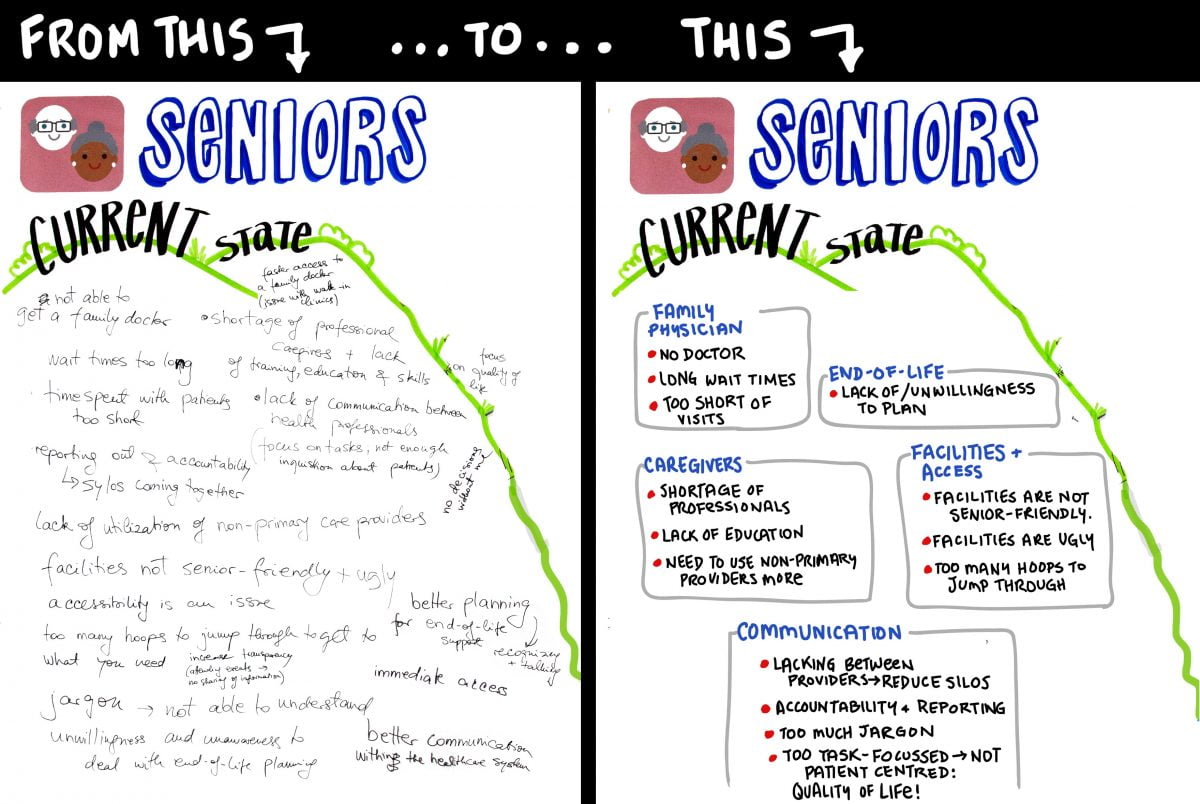 FROM THIS ...TO... THIS
SENIORS
CURRENT STATE
faster access to
a family doctor
(issue with walk-in
clinics)
not able to
get a family docter
• shortage of professional
caegivers + lack
of training, education & skills
focus
on quality of
life
wait times too long
time spent with patients
too short
• lack of communication between
health professionals
(focus on tasks, not enough
inquistion about patients)
no decisions
without me
reporting out & accountability
↳ sylos coming together
lack of utilization of non-primary care providers
facilities not senior-friendly + ugly
accessibility is an issue
too many hoops to jump through to get to
what you need
increase transparency
no sharing of information)
better planning
for end-of-life
support
+ talking
immediate access
jargon → not able to understand
unwillingness and unawareness to
deal with end-of-life planning
better communication
withing the healthcare system
SENIORS
CURRENT STATE
FAMILY
PHYSICIAN
• NO DOCTOR
• LONG WAIT TIMES
• TOO SHORT OF
VISITS
END-OF-LIFE
• LACK OF/UNWILLINGNESS
TO PLAN
CAREGIVERS
• SHORTAGE OF
PROFESSIONALS
• LACK OF EDUCATION
• NEED TO USE NON-PRIMARY
PROVIDERS MORE
FACILITIES +
ACCESS
• FACILITIES ARE NOT
SENIOR-FRIENDLY.
• FACILITIES ARE UGLY
• TOO MANY HOOPS TO
JUMP THROUGH
COMMUNICATION
• LACKING BETWEEN
PROVIDERS→REDUCE SILOS
• ACCOUNTABILITY + REPORTING
• TOO MUCH JARGON
• TOO TASK-FOCUSSED → NOT
PATIENT CENTRED:
QUALITY OF LIFE!